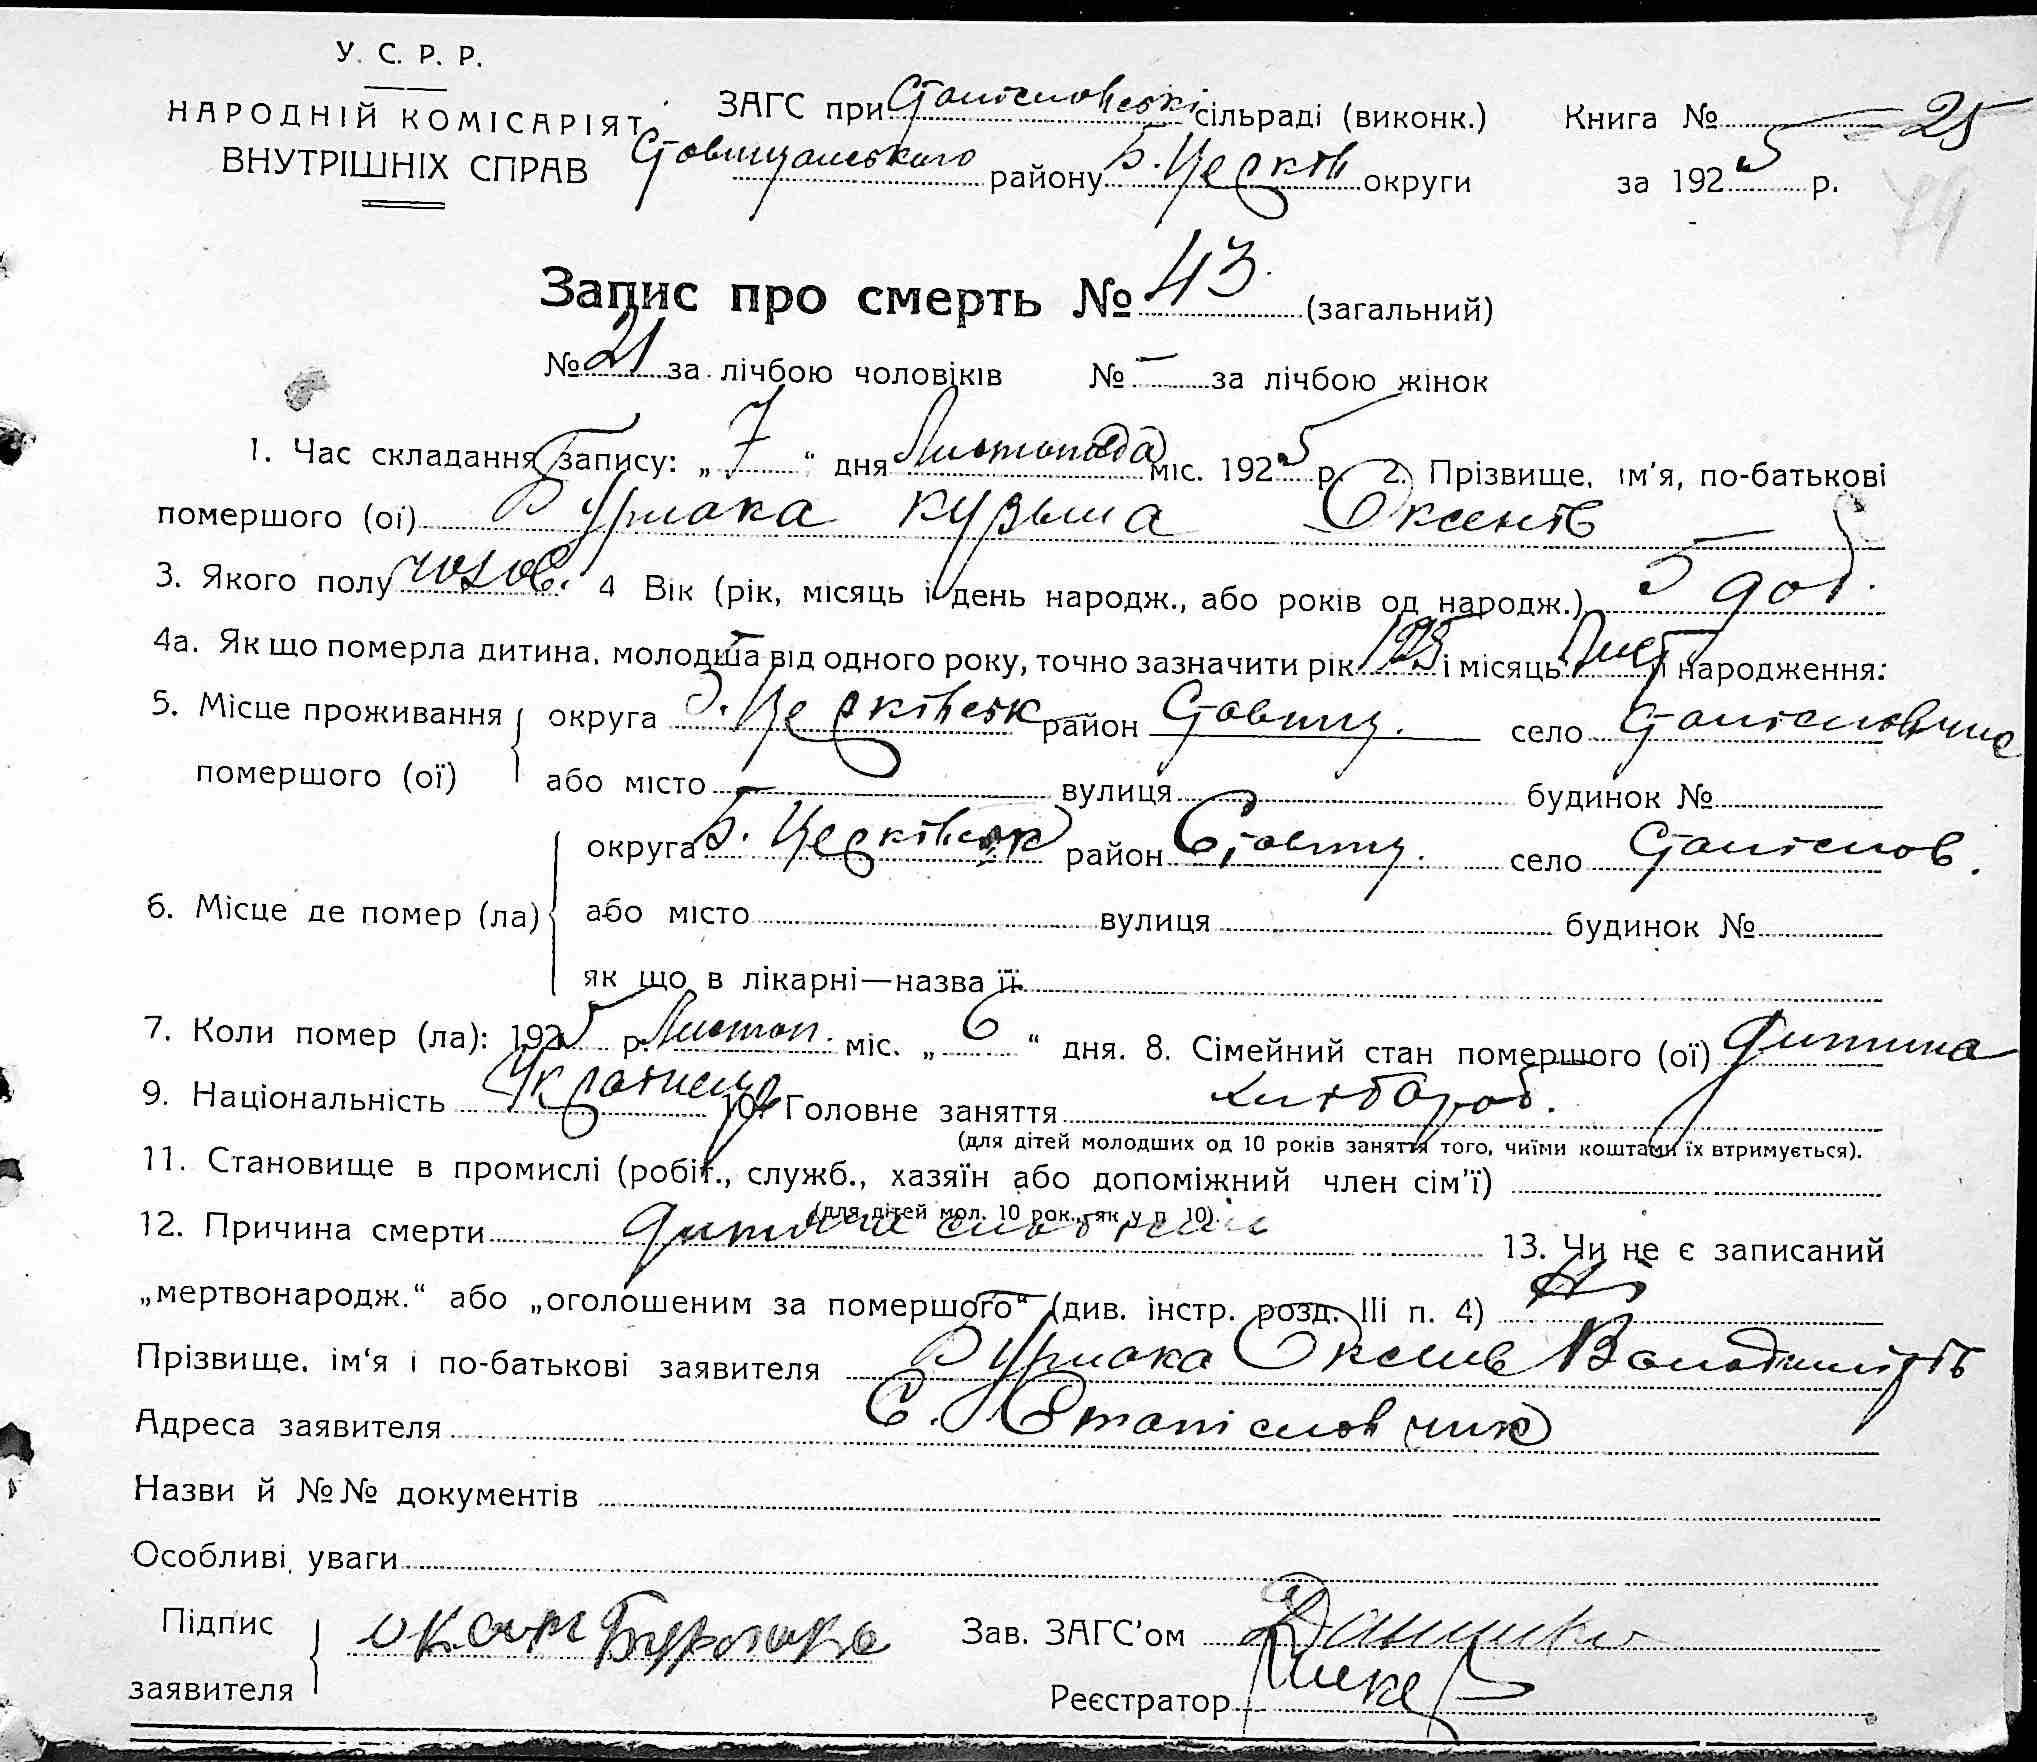 У. С. Р. Р.
НАРОДНІЙ КОМІСАРІЯТ
ВНУТРІШНІХ СПРАВ
ЗАГС при Станіславській сільраді (виконк.)
Ставищанського району Б. Церків округи
Книга № 5 – 25
за 1925 р.
79
Запис про смерть № 43 (загальний)
№ 21 за лічбою чоловіків № – за лічбою жінок
1. Час складання запису: „ 7 “ дня Листопада міс. 1925 р. 2. Прізвище, ім'я, по-батькові
помершого (ої) Бурлака Кузьма Оксентів
3. Якого полу чолов. 4 Вік (рік, місяць і день народж., або років од народж.) 5 доб.
4а. Як що померла дитина, молодша від одного року, точно зазначити рік 1925 і місяць Лист народження:
5. Місце проживання помершого (ої) округа Б. Церківськ район Ставищ. село Станіславчик
або місто – вулиця – будинок №
6. Місце де помер (ла) округа Б. Церківськ район Ставищ. село Станіслав.
або місто вулиця будинок №
як що в лікарні—назва її
7. Коли помер (ла): 1925 р. Листоп. міс. „ 6 “ дня. 8. Сімейний стан помершого (ої) дитина
9. Національність Українець 10. Головне заняття хлібороб.
(для дітей молодших од 10 років заняття того, чиїми коштами їх втримується).
11. Становище в промислі (робіт., служб., хазяїн або допоміжний член сім'ї)
(для дітей мол. 10 рок., як у п. 10).
12. Причина смерти дитяча 13. Чи не є записаний
„мертвонародж.“ або „оголошеним за помершого“ (див. інстр. розд. III п. 4) Ні
Прізвище, ім'я і по-батькові заявителя Бурлака Оксен Володимирів
Адреса заявителя С. Станіславчик
Назви й №№ документів
Особливі уваги
Підпис заявителя Бурлака
Зав. ЗАГС'ом
Реєстратор